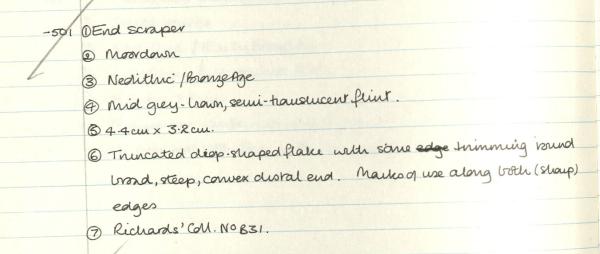 -501 ① End scraper
② Moordown
③ Neolithic / Bronze Age
④ Mid grey-brown, semi-translucent flint.
⑤ 4.4cm x 3.2cm.
⑥ Truncated drop-shaped flake with some edge trimming round
broad, steep, convex distal end. Marks of use along both (sharp)
edges
⑦ Richards' Coll. No B31.